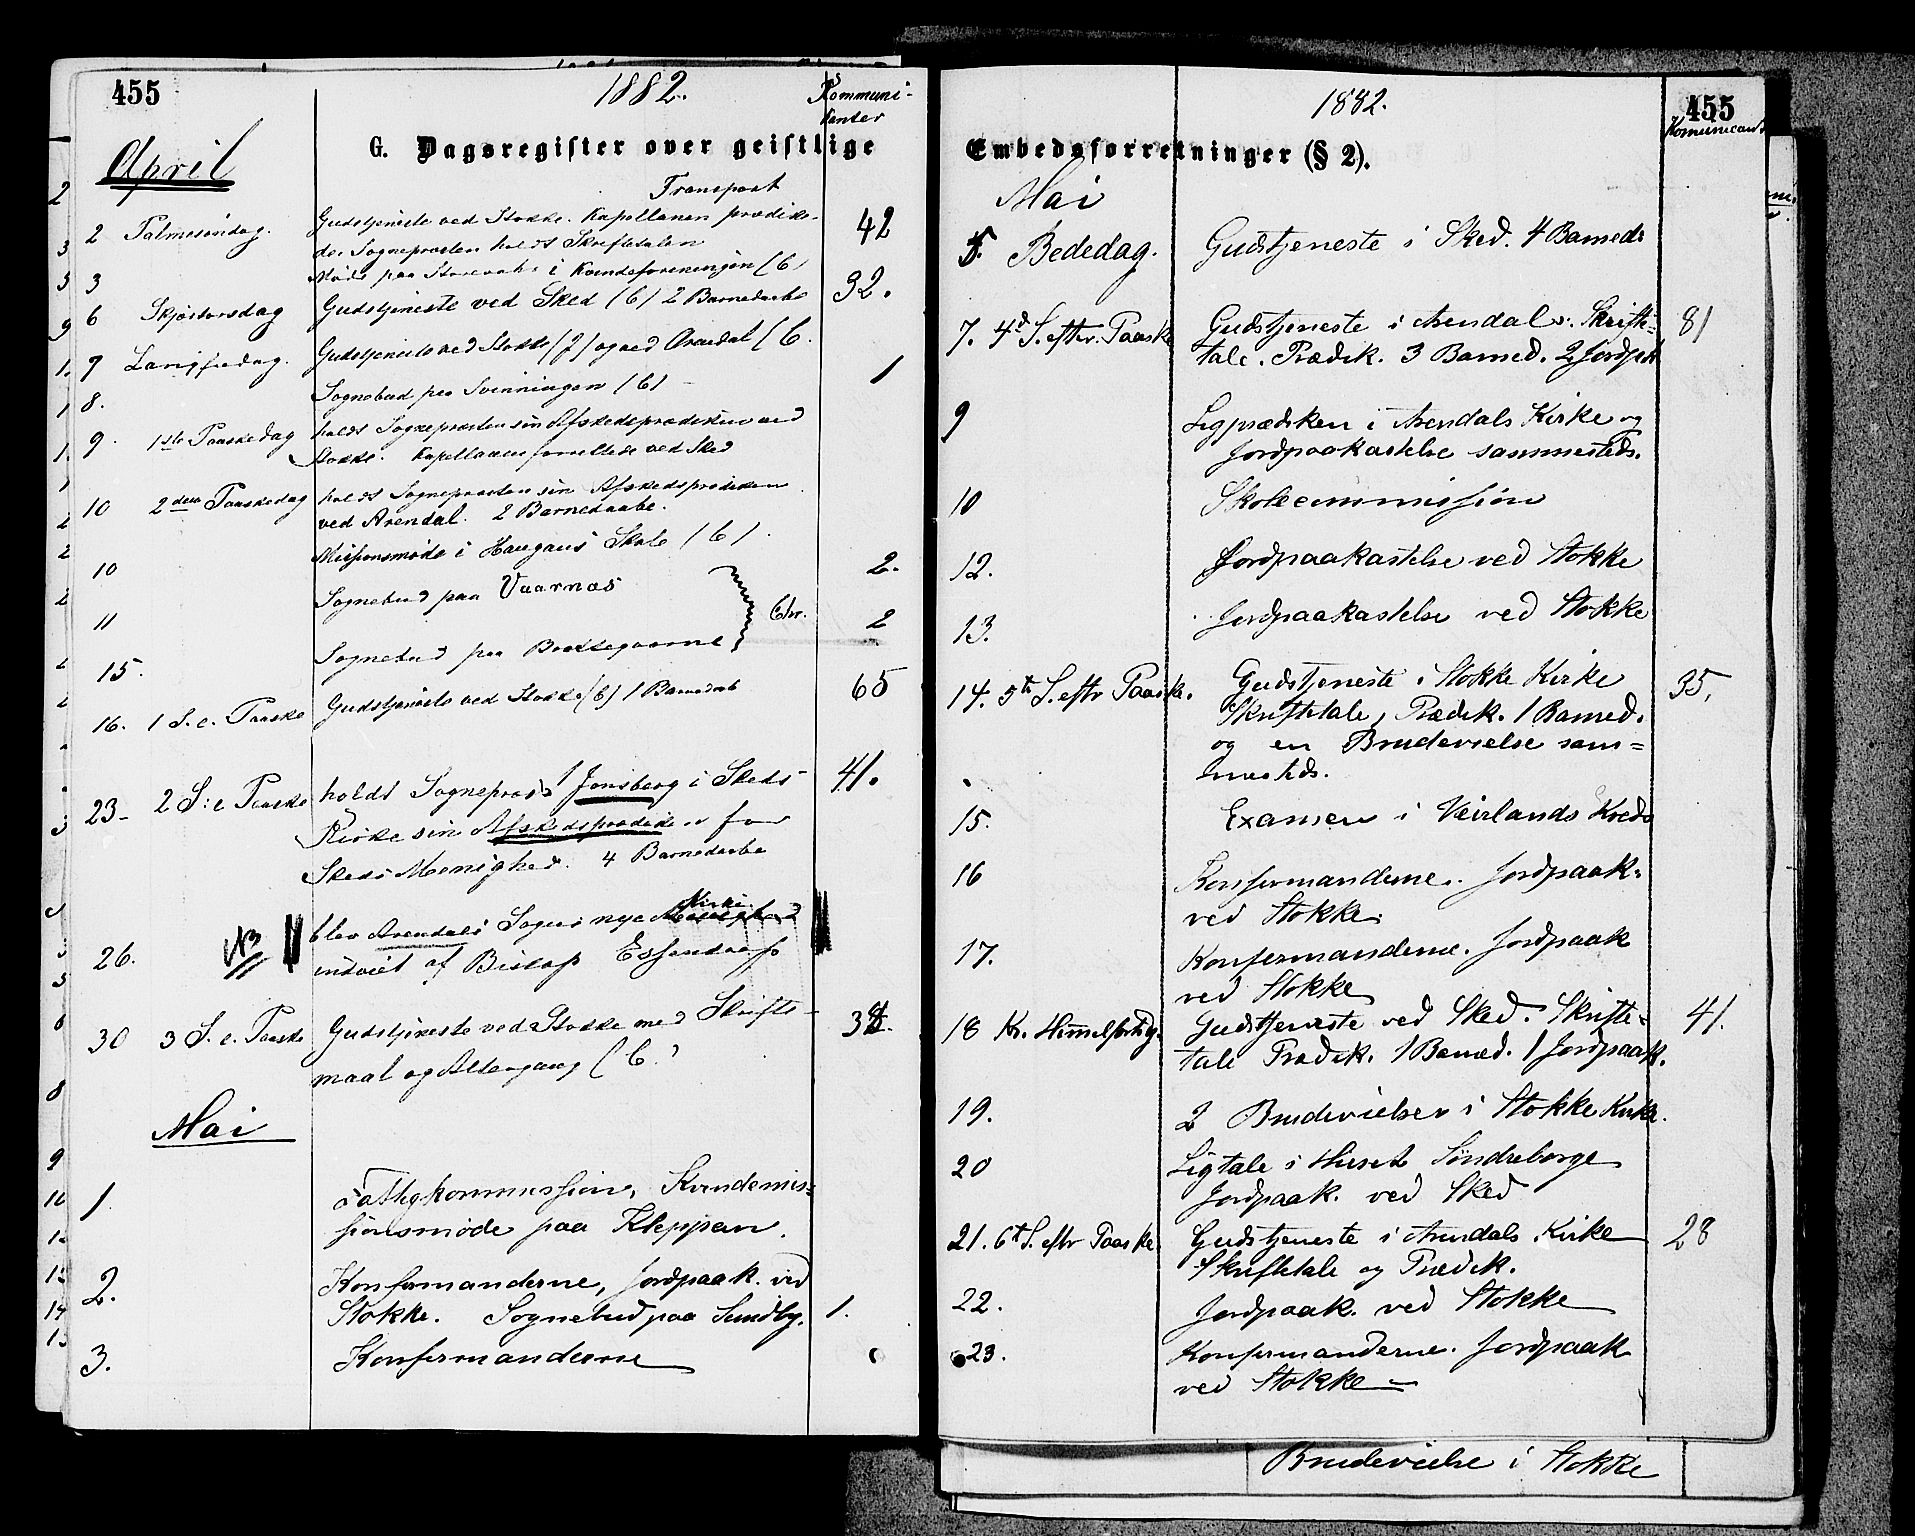 455
1882.
Kommuni-
kanter
G. Dagsregister over geistlige
April
Transport
2 Palmesøndag. Gudstjeneste ved Stokke. Kapellanen prædike-
de. Sogneprosten holdt Skriftetalen 42
3 Møde paa Storevahr i Kvindeforeningen (C)
6 Skjærtorsdag Gudstjeneste ved Sked (C) 2 Barnedaabe 32.
7 Langfredag. Gudstjeneste ved Stokke (J) og ved Arendal (C.
8. Sognebud paa Svinningen (C) - 1
9. 1ste Paaskedag holdt Sogneprosten sin Afskedsprædiken ved
Stokke. Kapellanen forrettede ved Sked
10 2den Paaskedag holdt Sogneprosten sin Afskedsprædiken
ved Arendal. 2 Barnedaabe.
10 Missionsmøde i Haugans Skole (C).
11 Sognebud paa Vaarnæs 2.
15. Sognebud paa Chr. 2
16. 1 S. e. Paaske Gudstjeneste ved Stokke (C) 1 Barnedaab 65
23- 2 S: e Paaske holdt Sogneprost Jonsberg i Skeds 41.
Kirke sin Afskedsprædiken for
Skeds Menighed. 4 Barnedaabe
26. NB blev Arendals Sogns nye Kirke
indviet af Biskop Essendrop
30 3 S. e. Paaske Gudstjeneste ved Stokke med Skrifte-
maal og Altergang (C.)
Mai
1. Fattigkommission, Kvindemis-
sionsmøde paa Kleppan.
2. Konfirmanderne, Jordpaak. ved
Stokke. Sognebud paa Sundby. 1.
3. Konfirmanderne
1882.
455
Komunicant
Embedsforretninger (§ 2).
Mai
5. Bededag. Gudstjeneste i Sked. 4 Barned:
7. 4d S. eftr. Paaske Gudstjeneste i Arendal. Skrifte- 81
tale. Prædik. 3 Barned. 2 Jordpk
9 Ligprædiken i Arendals Kirke og
Jordpaakastelse sammesteds.
10 Skolecommission
12. Jordpaakastelse ved Stokke
13. Jordpaakastelse ved Stokke
14. 5te S. eftr Paaske. Gudstjeneste i Stokke Kirke 35,
Skriftetale, Prædik. 1 Barned.
og en Brudevielse sam=
mesteds.
15. Examen i Veirlands Kreds
16 Konfirmanderne. Jordpaak.
ved Stokke.
17. Konfirmanderne. Jordpaak
ved Stokke
18 Kr. Himmelfartsdg. Gudstjeneste ved Sked. Skrifte- 41.
tale Prædik. 1 Barned. 1 Jordpaak.
19. 2 Brudevielser i Stokke Kirke.
20 Ligtale i Huset Søndreborge
Jordpaak. ved Sked
21. 6t S. eftr Paaske Gudstjeneste i Arendals Kirke 28
Skriftetale og Prædik.
22. Jordpaak. ved Stokke
23. Konfirmanderne. Jordpaak
ved Stokke
Brudevielse i Stokke